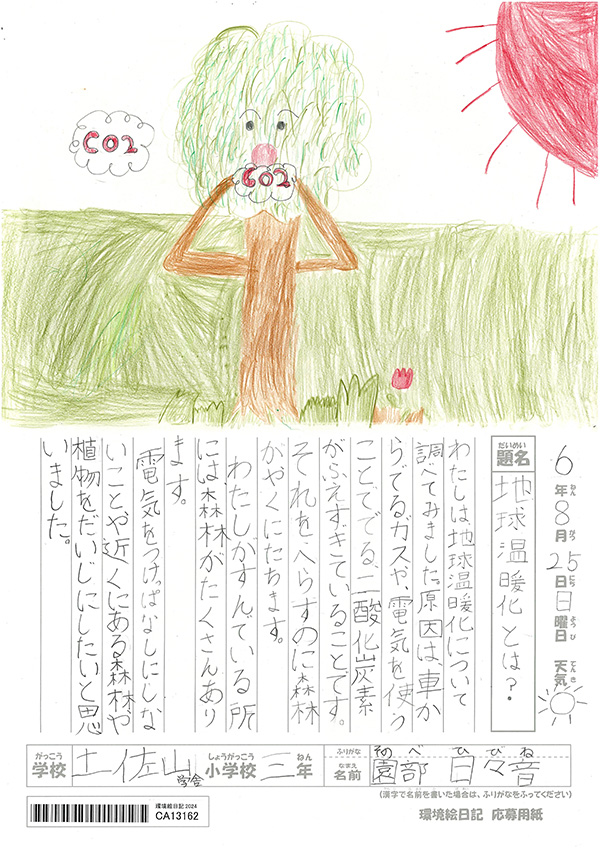 CO2
CO2
6年ねん8月がつ25日にち日曜日ようび 天気てんき
題名だいめい 地球温暖化とは?
わたしは地球温暖化について
調べてみました。原因は、車か
らでるガスや、電気を使う
ことででる、二酸化炭素
がふえすぎていることです。
それをへらすのに森林
がやくにたちます。
わたしがすんでいる所
には森林がたくさんあり
ます。
電気をつけっぱなしにしな
いことや近くにある森林や
植物をだいじにしたいと思
いました。
学校がっこう 土佐山学舎 小学校しょうがっこう 三年ねん
ふりがな そのべ ひびね
名前なまえ 園部 日々音
(漢字で名前を書いた場合は、ふりがなをふってください)
環境絵日記 2024
CA13162
環境絵日記 応募用紙